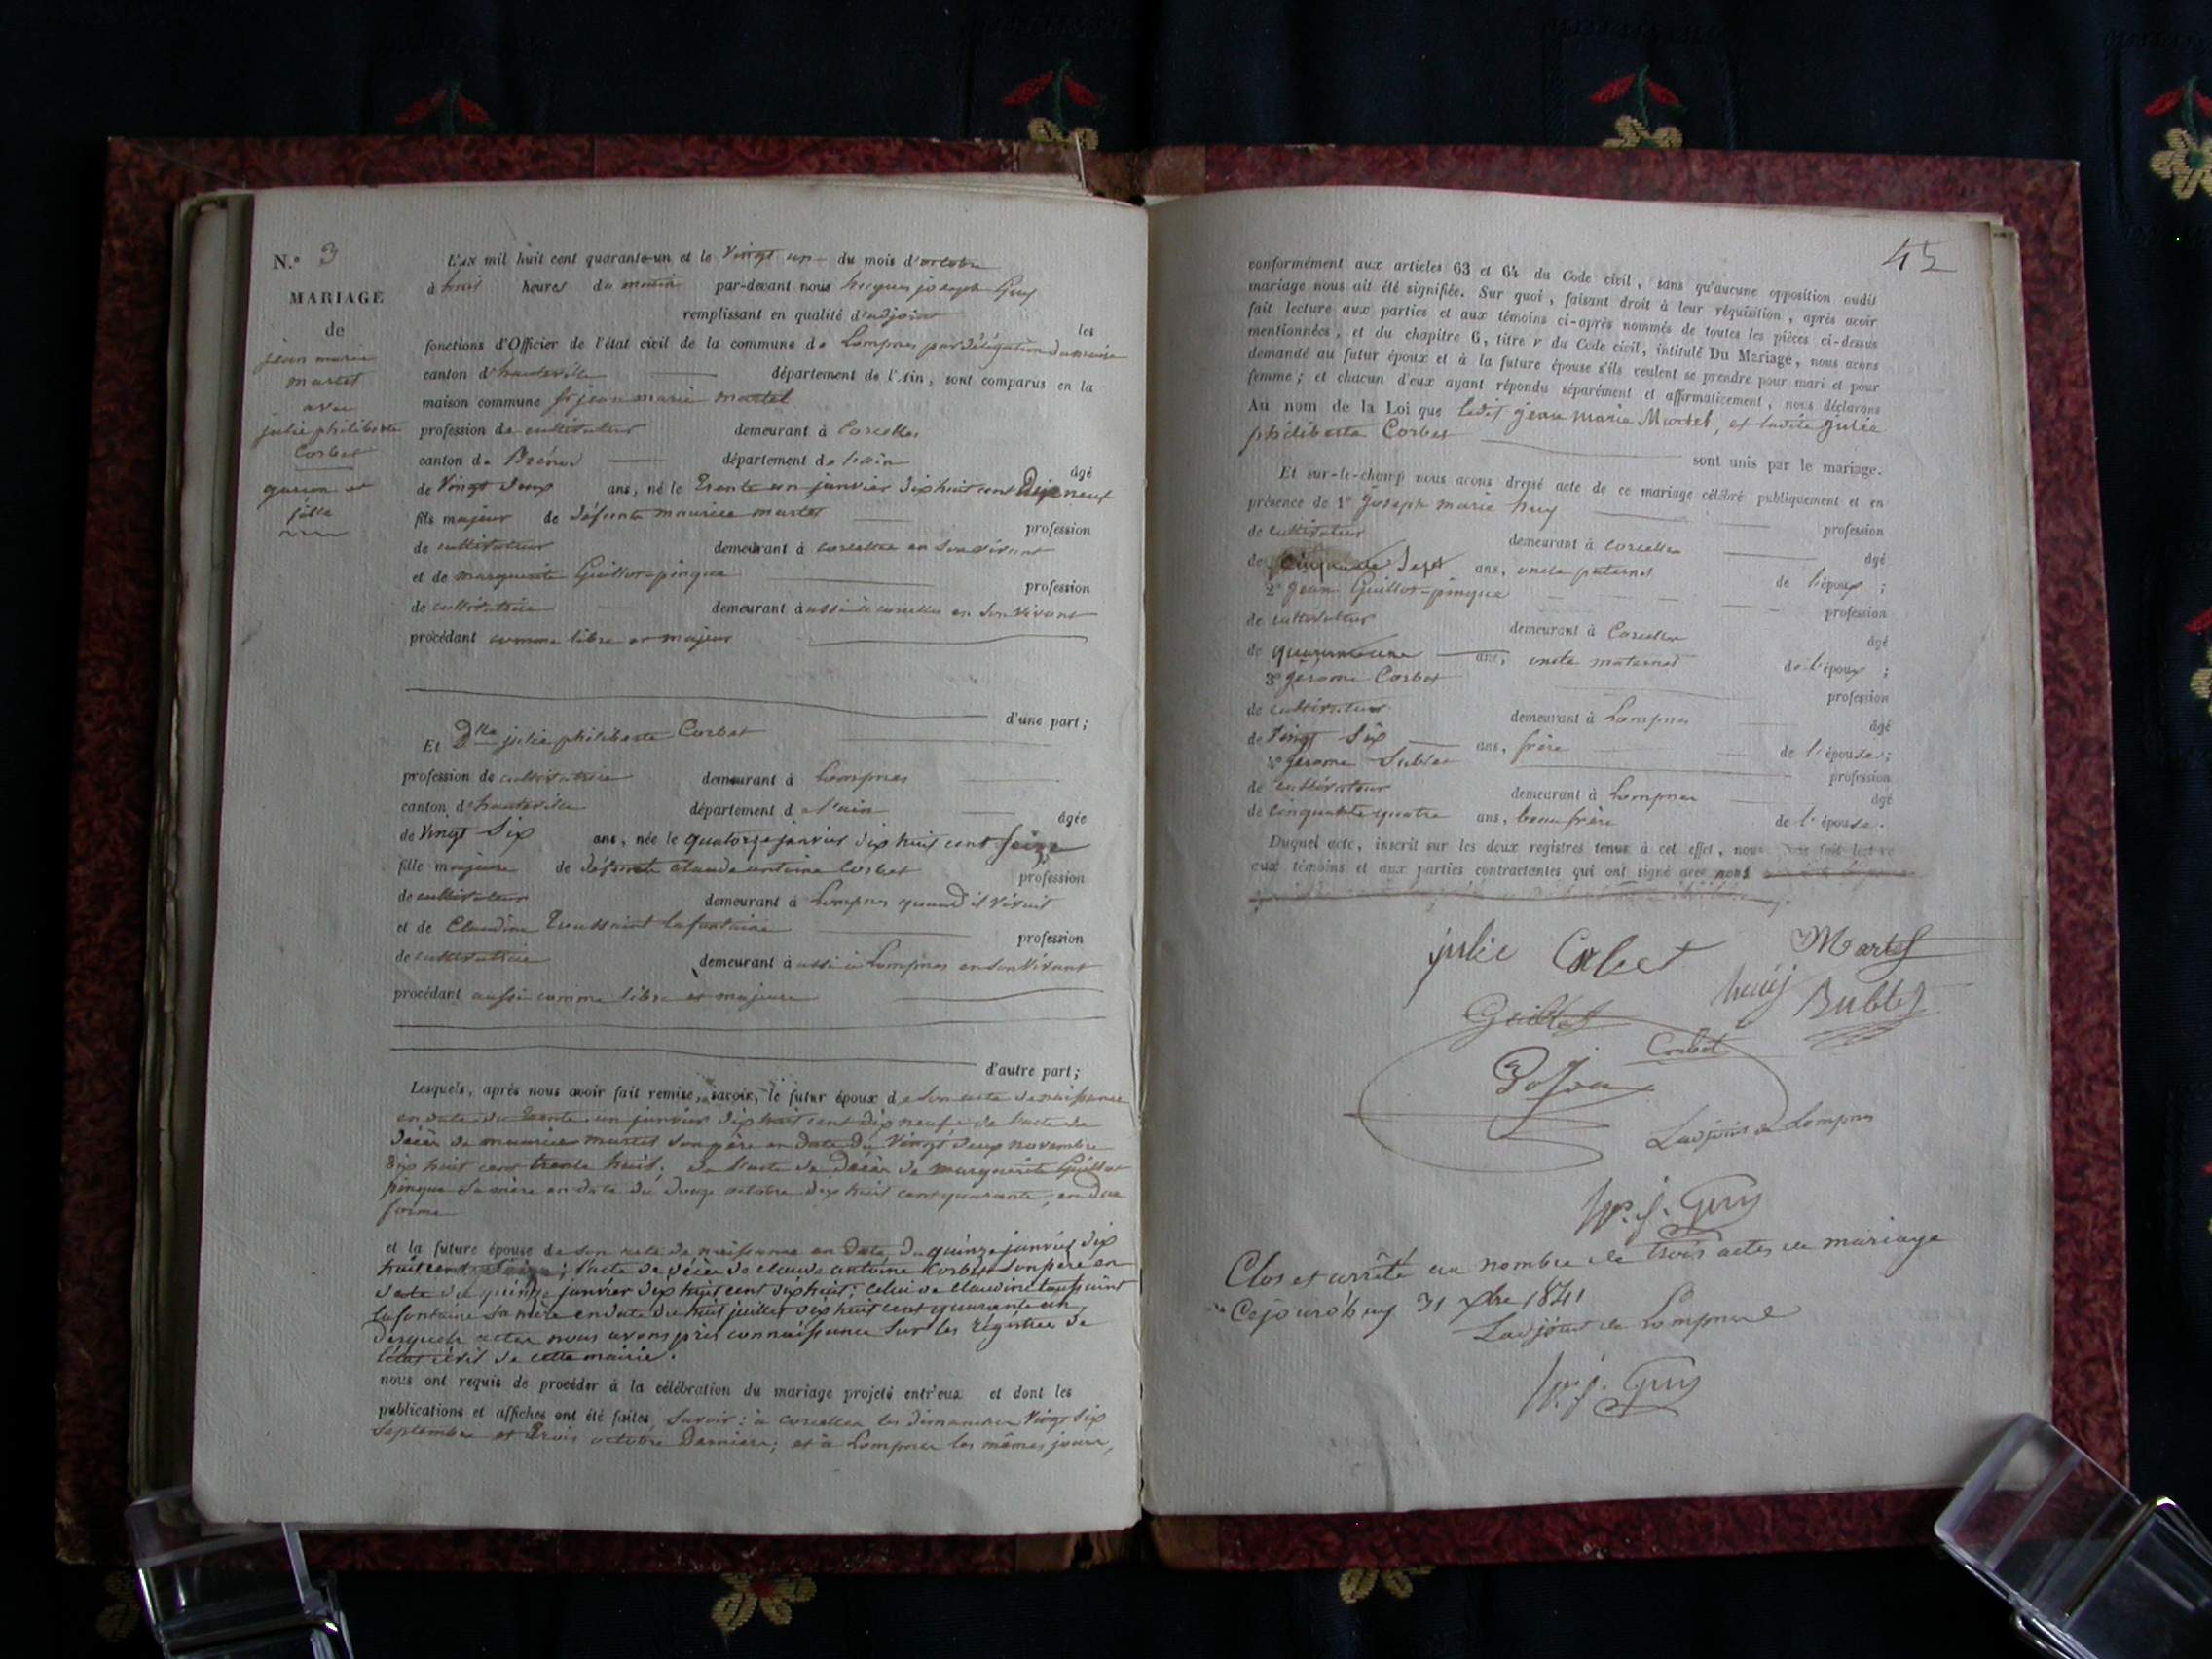 N.º 3
MARIAGE
de
jean marie
martel
avec
julie philiberte
Corbet
garçon et
fille
L'AN mil huit cent quarante-un et le Vingt un du mois d'octobre
à huit heures du matin par-devant nous jacques joseph Guy
remplissant en qualité d'adjoint les
fonctions d'Officier de l'état civil de la commune de Lompnes par délégation du maire
canton d'hauteville département de l'Ain, sont comparus en la
maison commune jean marie martel
profession de cultivateur demeurant à Corcelles
canton de Brénod département de l'ain
âgé
de Vingt deux ans, né le Trente un janvier dix huit cent dix neuf
fils majeur de défunts maurice martel
profession
de cultivateur demeurant à corcelles en son vivant
et de marguerite Guillot-pingue
profession
de cultivatrice demeurant à aussi à corcelles en son vivant
procédant comme libre et majeur
d'une part;
Et Dlle julie philiberte Corbet
profession de cultivatrice demeurant à Lompnes
canton d'hauteville département de l'ain
âgée
de Vingt Six ans, née le quatorze janvier dix huit cent seize
fille majeure de défunts claude antoine Corbet
profession
de cultivateur demeurant à Lompnes quand il vivait
et de Claudine Toussaint lafontaine
profession
de cultivatrice demeurant à aussi à Lompnes en son Vivant
procédant aussi comme libre et majeure
d'autre part;
Lesquels, après nous avoir fait remise, savoir, le futur époux de son acte de naissance
en date du Trente un janvier dix huit cent dix neuf, de l'acte de
décès de maurice martel son père en date du Vingt deux novembre
dix huit cent trente huit; de l'acte de décès de marguerite Guillot
pingue sa mère en date du douze octobre dix huit cent quarante, en due
forme
et la future épouse de son acte de naissance en date du quinze janvier dix
huit cent seize; l'acte de décès de claude antoine Corbet son père en
date du quinze janvier dix huit cent dix huit; celui de claudine toussaint
lafontaine sa mère en date du huit juillet dix huit cent quarante un,
desquels actes nous avons pris connaissance sur les régistres de
l'état civil de cette mairie.
nous ont requis de procéder à la célébration du mariage projeté entr'eux et dont les
publications et affiches ont été faites, Savoir: à corcelles les dimanches Vingt Six
Septembre et Trois octobre Derniers; et à Lompnes les mêmes jours,
45
conformément aux articles 63 et 64 du Code civil, sans qu'aucune opposition audit
mariage nous ait été signifiée. Sur quoi, faisant droit à leur réquisition, après avoir
fait lecture aux parties et aux témoins ci-après nommés de toutes les pièces ci-dessus
mentionnées, et du chapitre 6, titre v du Code civil, intitulé Du Mariage, nous avons
demandé au futur époux et à la future épouse s'ils veulent se prendre pour mari et pour
femme; et chacun d'eux ayant répondu séparément et affirmativement, nous déclarons
Au nom de la Loi que ledit jean marie Martel, et ladite julie
philiberte Corbet
sont unis par le mariage.
Et sur-le-champ nous avons dressé acte de ce mariage célébré publiquement et en
présence de 1º Joseph marie huy
profession
de cultivateur demeurant à corcelles
âgé
de Cinquante Sept ans, oncle paternel de l'époux;
2º jean Guillot-pingue
profession
de cultivateur demeurant à Corcelles
âgé
de quarante une ans, oncle maternel de l'époux;
3º jerome Corbet
profession
de cultivateur demeurant à Lompnes
âgé
de Vingt Six ans, frère de l'épouse;
4º jerome Bublet
profession
de cultivateur demeurant à Lompnes
âgé
de cinquante quatre ans, beau frère de l'épouse.
Duquel acte, inscrit sur les deux registres tenus à cet effet, nous
aux témoins et aux parties contractantes qui ont signé avec nous
julie Corbet Martel
Guillot huy Bublet
Corbet
L'adjoint de Lompnes
j. Guy
Clos et arrêté au nombre de trois actes de mariage
Cejourd'huy 31 xbre 1841
L'adjoint de Lompnes
j. Guy